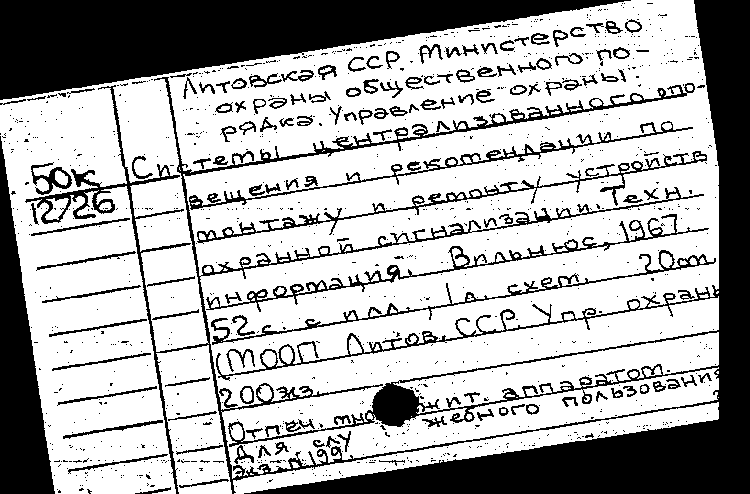 Литовская ССР. Министерство
охраны общественного по-
рядка. Управление охраны.
Системы централизованного опо-
50к
12726
вещения и рекомендации по
монтажу и ремонту устройств
охранной сигнализации. Техн.
информация. Вильнюс, 1967.
52 с. с илл., 1 л. схем. 20 см
(МООП Литов. ССР. Упр. охраны
200 экз.
Отпеч. мно жит. аппаратом.
Для слу жебного пользования
Экз. № 199.